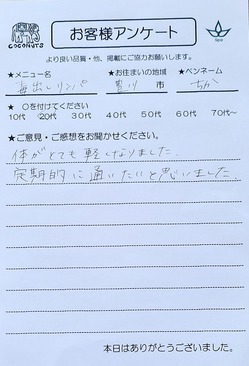 COCONUTS
お客様アンケート
より良い品質・他、掲載にご協力お願いします。
★メニュー名 ★お住まいの地域 ★ペンネーム
毒出しリンパ 豊川 市 ちか
★ ○を付けてください
10代 20代 30代 40代 50代 60代 70代~
★ご意見・ご感想をお聞かせください。
体がとても軽くなりました。
定期的に通いたいと思いました。
本日はありがとうございました。